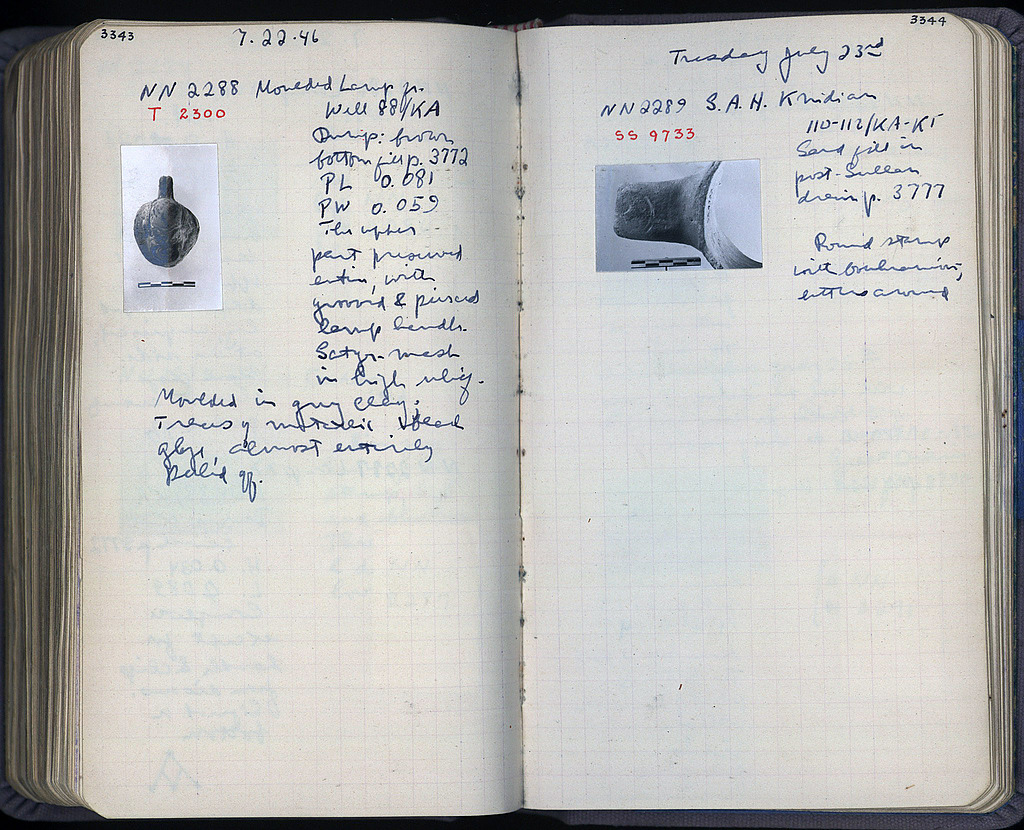 3343
7.22.46
NN 2288 Moulded Lamp fr.
T 2300
Well 88/KA
Dump: brown
bottom fill p. 3772
PL 0.081
PW 0.059
The upper
part preserved
entire, with
grooved & pierced
lamp handle.
Satyr-mask
in high relief.
Moulded in grey clay;
Traces of metallic black
glaze, almost entirely
peeled off.
3344
Tuesday July 23rd
NN 2289 S.A.H. Knidian
SS 9733
110-112/KA-KΓ
Sand fill in
post-Sullan
drain p. 3777
Round stamp
with boukranion,
letters around